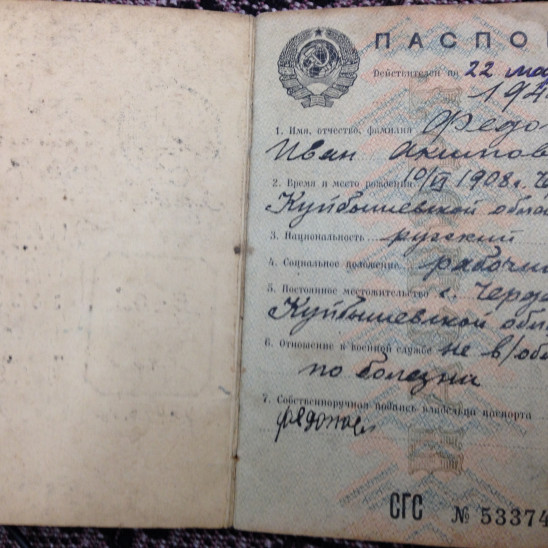 ПАСПО
Действителен по 22 мая
194
1. Имя, отчество, фамилия Федо
Иван Акимов
2. Время и место рождения 10/VI 1908 г. Че
Куйбышевской обла
3. Национальность русский
4. Социальное положение рабочи
5. Постоянное местожительство г. Черд
Куйбышевской обл
6. Отношение к военной службе не в/об
по болезни
7. Собственноручная подпись владельца паспорта
СГС № 53374